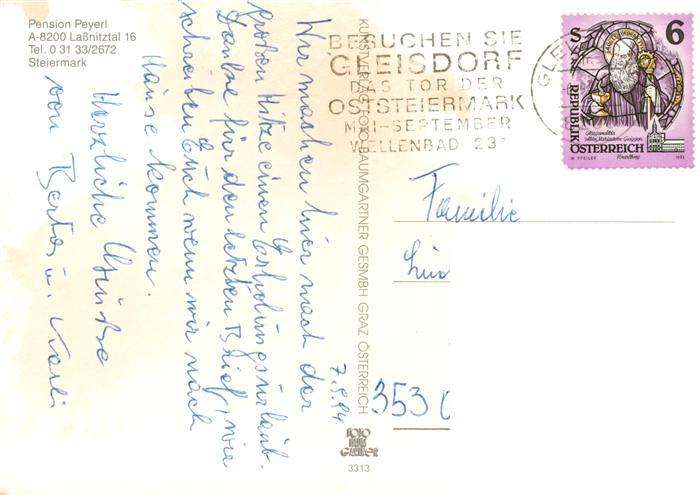 Pension Peyerl
A-8200 Laßnitztal 16
Tel. 0 31 33/2672
Steiermark
Wir machen hier nach der
großen Hitze einen Erholungsurlaub.
Danke für den letzten Brief, wir
schreiben Euch wenn wir nach
Hause kommen.
Herzliche Grüße
von Berta u. Karli
7.9.94
KUNSTVERLAG FOTO BAUMGARTNER GESMBH GRAZ ÖSTERREICH
FOTO
BAUM
GARTNER
3313
BESUCHEN SIE
GLEISDORF
DAS TOR DER
OSTSTEIERMARK
MAI-SEPTEMBER
WELLENBAD 23°
GLEI
S 6
REPUBLIK
ÖSTERREICH
W. PFEILER
1993
Familie
353